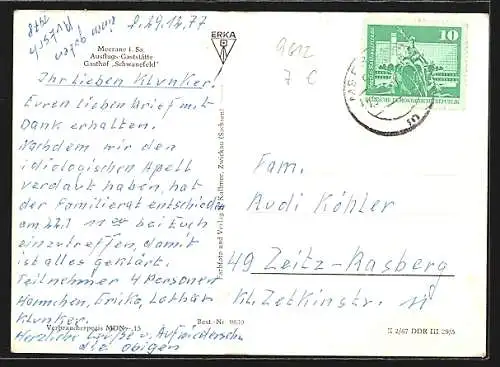 Z. 29.12.77
zum guten
Rutsch
1978
Meerane i. Sa.
Ausflugs-Gaststätte
Gasthof „Schwanefeld“
Ihr lieben Klunker.
Euren lieben Brief mit
Dank erhalten.
Nachdem wir den
idiologischen Apell
verdaut haben, hat
der Familienrat entschieden
am 22.1 11⁰⁰ bei Euch
einzutreffen, damit
ist alles geklärt.
Teilnehmer 4 Personen
Hannchen, Erika, Lothar
Klunker.
Verbraucherpreis MDN -,15
Herzliche Grüße u. Aufwiedersehn
die Obigen
Best.-Nr. 9630
ERKA
Farbfoto und Verlag R. Kallmer, Zwickau (Sachsen)
9612
7 C
10
DEUTSCHE DEMOKRATISCHE REPUBLIK
Fam.
Rudi Köhler
49 Zeitz-Rasberg
Kl. Zetkinstr. 11
II 2/67 DDR III 29/5